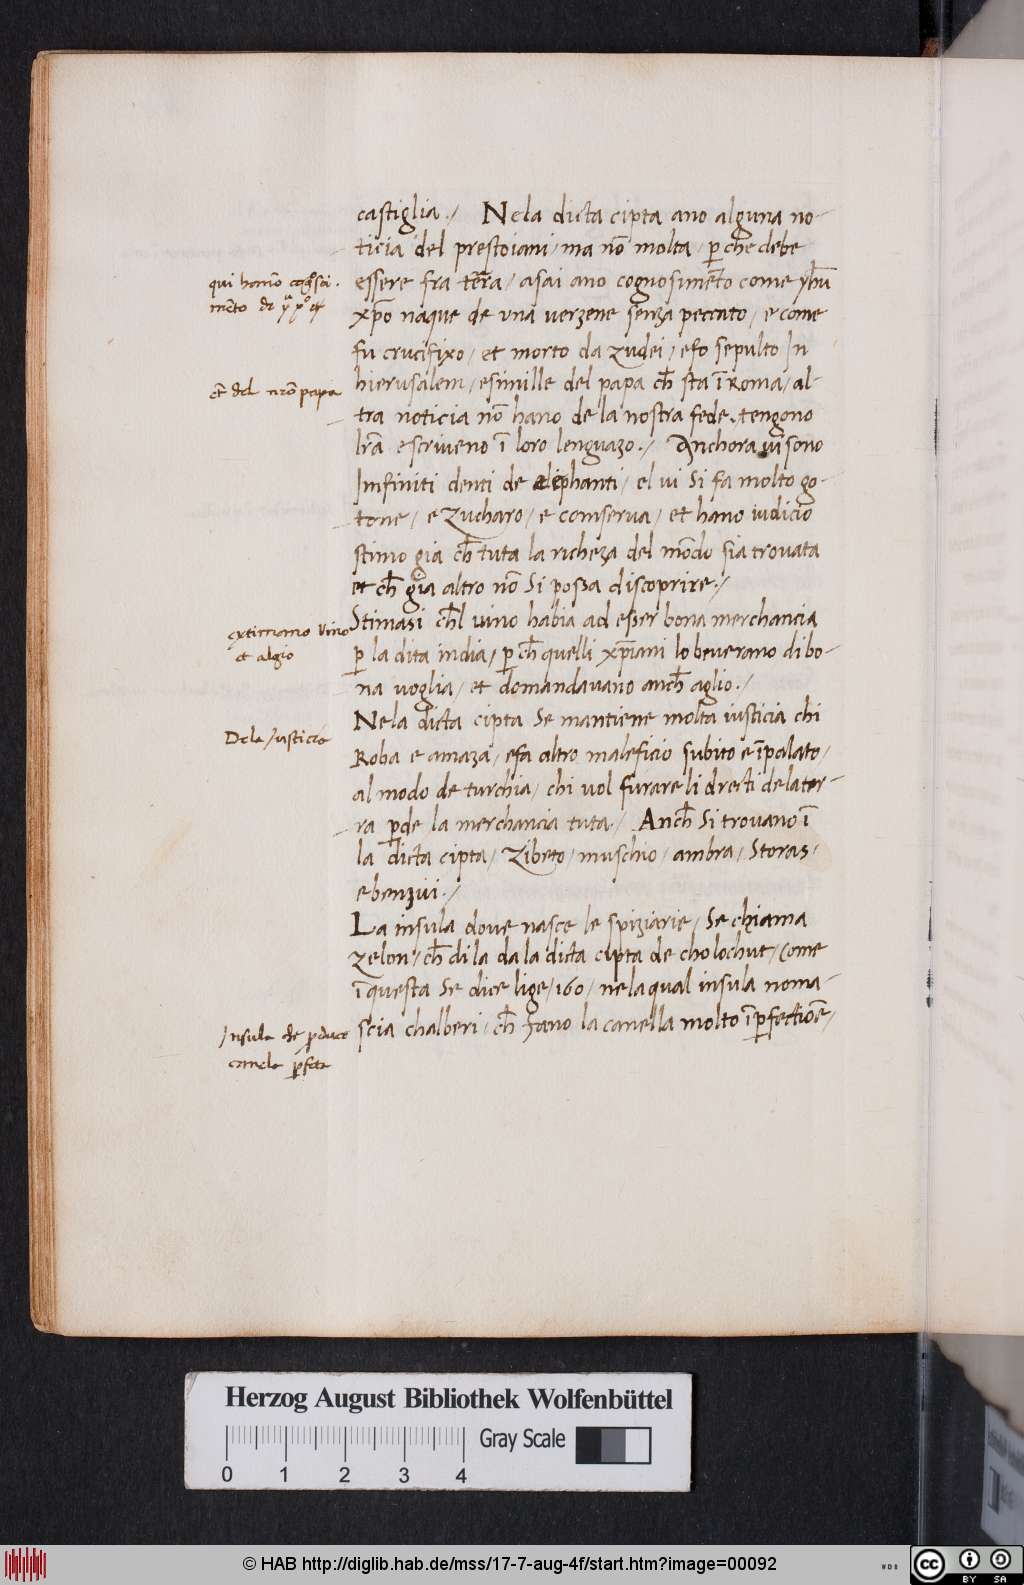 castiglia./ Nela dicta cipta ano alguna no-
ticia del prestoiani/ma nõ molta/ p̱ che debe
qui hanño cog.sci.
mẽto de
essere fra tẽrra/ asai ano cognosimẽto come yh̃u
xp̃o naque de vna verzene senza peccato/ e come
fu crucifixo/ et morto da zudei/ efo sepulto In
et̃ del nrõ papa
hierusalem/ esimille del papa ch̃ sta ĩ Roma/al-
tra noticia nõ hano de la nostra fede./tengono
lrã e scriveno ĩ loro lenguazo./ Anchora vi sono
Imfiniti denti de eliphanti/ el vi si fa molto go-
tone/ e zucharo/ e comserva/ et hano iudicio
stimo gia ch̃ tuta la richeza del mõdo sia trovata
et ch̃ gia altro nõ si possa discoprire./
extimano vino
et algio
Stimasi ch̃l vino habia ad esser bona merchancia
p̱ la dita india/ p̱ ch̃ quelli xp̃iani lo beverano di bo-
na voglia/ et domandavano anch̃ aglio./
Dela Iusticia
Nela dicta cipta se mantiene molta iusticia chi
Roba e amaza/ efa altro maleficio subito e ĩpalato/
al modo de turchia/ chi vol furare li drecti de la ter-
ra p̱de la merchancia tuta./ Anch̃ si trovano ĩ
la dicta cipta/ zibeto/ muschio/ ambra/ storas/
e benzui./
La insula dove nasce le spiziarie/ se chiama
zelon/ ch̃ di la da la dicta cipta de cholochut/ come
ĩ questa se dice lige/160/ nela qual insula noma-
Insula che p̱duce
canela p̱feta
scia chalberi/ ch̃ fano la canella molto ĩp̱fectiõe/
Herzog August Bibliothek Wolfenbüttel
Gray Scale
0 1 2 3 4
© HAB http://diglib.hab.de/mss/17-7-aug-4f/start.htm?image=00092
WDB
cc BY SA